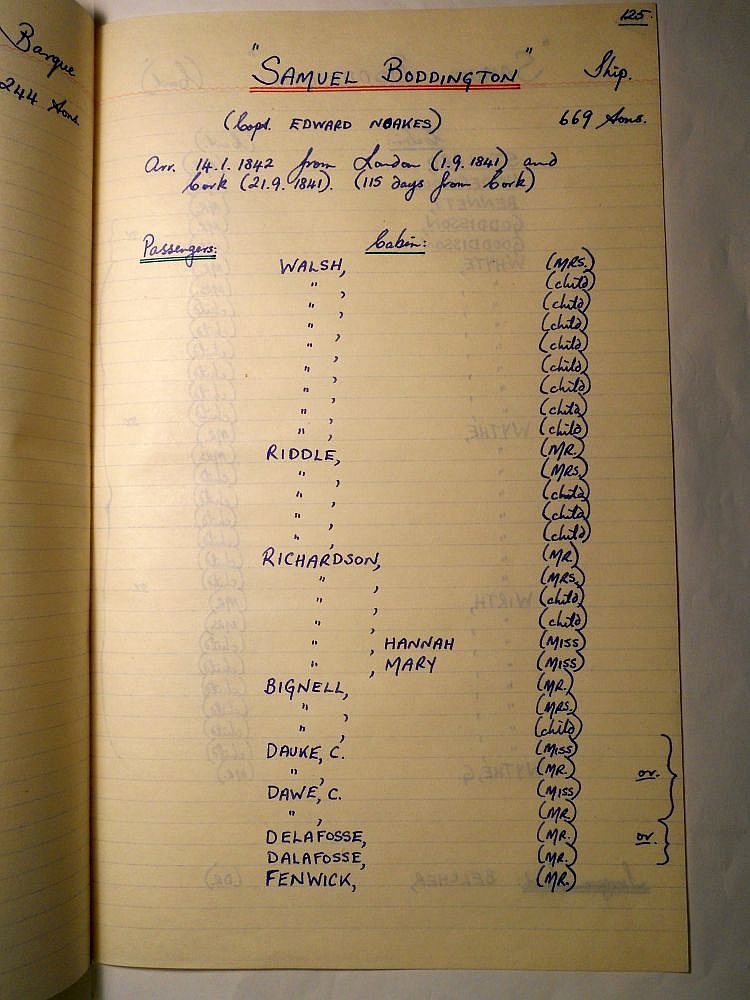 Barque
244 tons
125.
"SAMUEL BODDINGTON" Ship.
(Capt. EDWARD NOAKES) 669 tons.
Arr. 14.1.1842 from London (1.9.1841) and
Cork (21.9.1841). (115 days from Cork)
Passengers: Cabin:
WALSH, (MRS.)
" , (child)
" , (child)
" , (child)
" , (child)
" , (child)
" , (child)
" , (child)
" , (child)
RIDDLE, (MR.)
" , (MRS.)
" , (child)
" , (child)
" , (child)
RICHARDSON, (MR.)
" , (MRS.)
" , (child)
" , (child)
" , HANNAH (MISS)
" , MARY (MISS)
BIGNELL, (MR.)
" , (MRS.)
" , (child)
DAUKE, C. (MISS)
" , (MR.) or
DAWE, C. (MISS)
" , (MR.)
DELAFOSSE, (MR.) or
DALAFOSSE, (MR.)
FENWICK, (MR.)